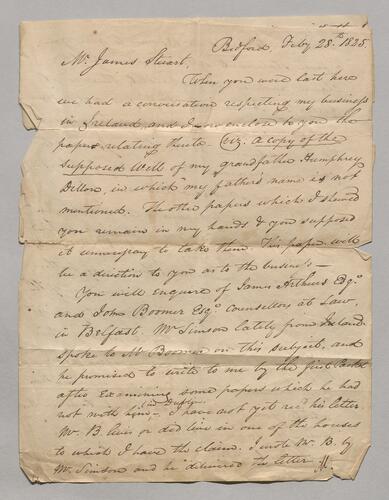 Bedford, Feby 28th 1835.
Mr. James Stuart,
When you were last here
we had a conversation respecting my business
in Ireland, and I now enclose to you the
papers relating thereto (viz. A copy of the
supposed Will of my grandfather Humphrey
Dillon, in which my father's name is not
mentioned. The other papers which I shewed
you remain in my hands & you supposed
it unnecessary to take them. This paper will
be a direction to you as to the business —
You will enquire of James Arthurs Esqr.
and John Boomer Esqr. Counsellors at Law,
in Belfast. Mr Simson lately from Ireland
spoke to Mr Boomer on this subject, and
he promised to write to me by the first Packet
after examining some papers which he had
not with him — I have not yet recd his letter
Mr. B. lives or did live in one of the houses
to which I have the claim. I wrote Mr. B. by
Mr. Simson and he delivered the letter